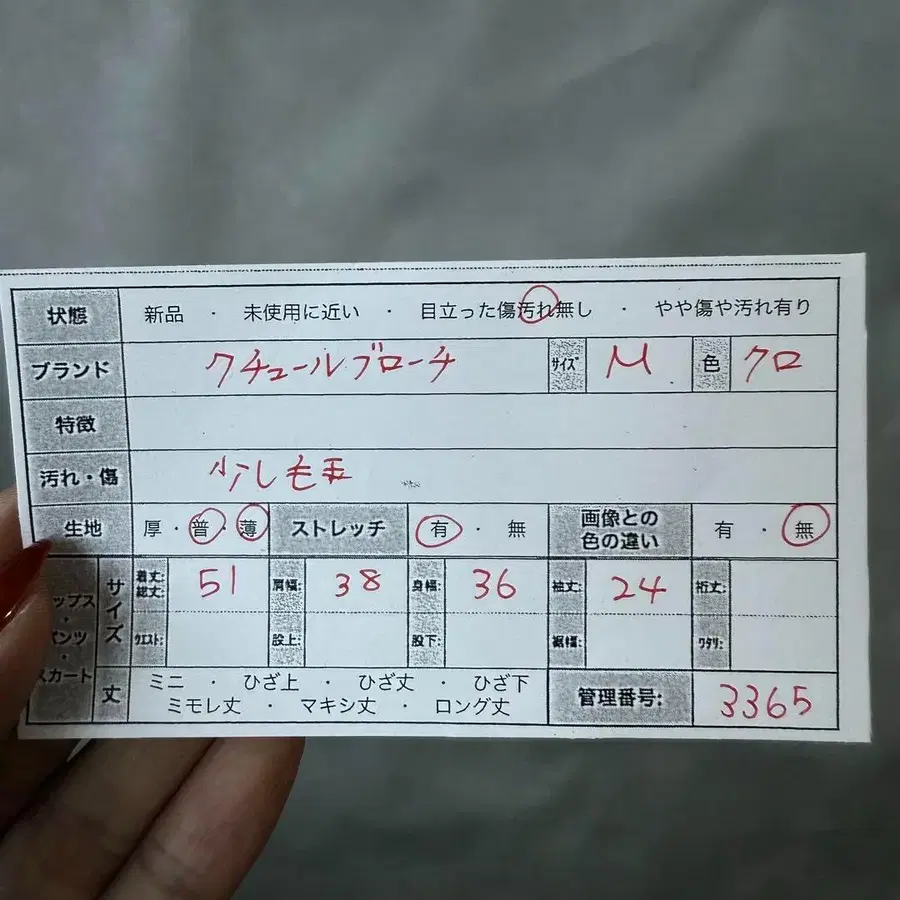 状態 新品 ・ 未使用に近い ・ 目立った傷汚れ無し ・ やや傷や汚れ有り
ブランド クチュールブローチ サイズ M 色 クロ
特徴
汚れ・傷 少し毛玉
生地 厚・普・薄 ストレッチ 有・無 画像との色の違い 有・無
サイズ 着丈:総丈: 51 肩幅: 38 身幅: 36 袖丈: 24 裄丈:
ップス・パンツ・スカート ウエスト: 股上: 股下: 裾幅: ワタリ:
丈 ミニ ・ ひざ上 ・ ひざ丈 ・ ひざ下
ミモレ丈 ・ マキシ丈 ・ ロング丈 管理番号: 3365